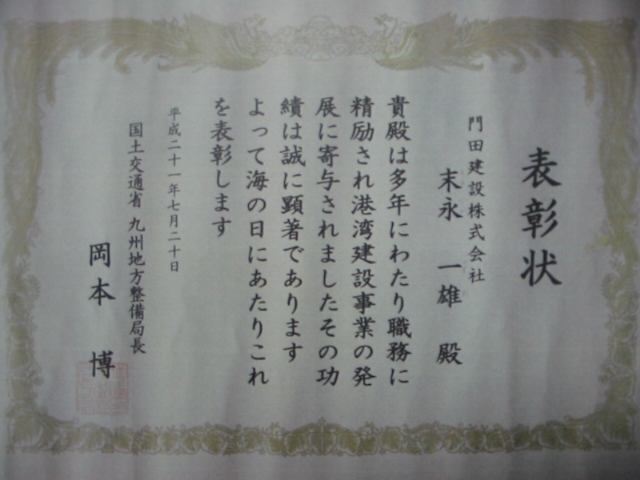 表彰状
門田建設株式会社
末永 一雄 殿
貴殿は多年にわたり職務に
精励され港湾建設事業の発
展に寄与されましたその功
績は誠に顕著であります
よって海の日にあたりこれ
を表彰します
平成二十一年七月二十日
国土交通省 九州地方整備局長
岡本 博